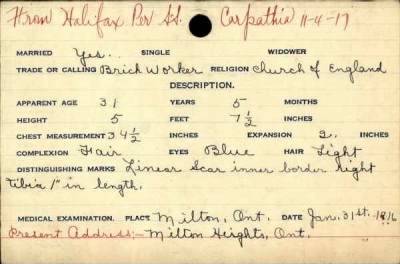 From Halifax Per S.S. Carpathia 11-4-17
MARRIED Yes. SINGLE WIDOWER
TRADE OR CALLING Brick Worker RELIGION Church of England
DESCRIPTION.
APPARENT AGE 31 YEARS 5 MONTHS
HEIGHT 5 FEET 7 1/2 INCHES
CHEST MEASUREMENT 34 1/2 INCHES EXPANSION 2. INCHES
COMPLEXION Fair EYES Blue HAIR Light
DISTINGUISHING MARKS Linear Scar inner border right
tibia 1" in length.
MEDICAL EXAMINATION. PLACE Milton, Ont. DATE Jan. 31st. 1916
Present Address:- Milton Heights, Ont.